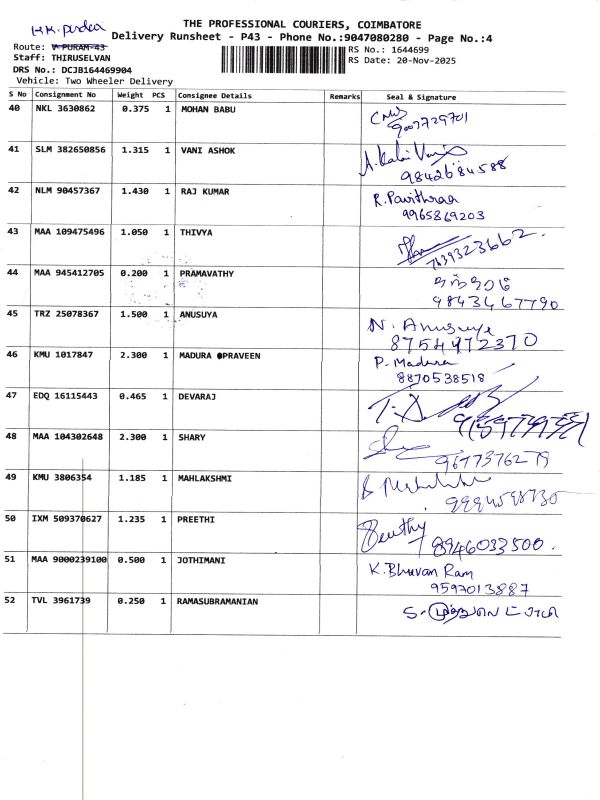 THE PROFESSIONAL COURIERS, COIMBATORE
Delivery Runsheet - P43 - Phone No.:9047080280 - Page No.:4
Route: V PURAM-43
RS No.: 1644699
Staff: THIRUSELVAN
RS Date: 20-Nov-2025
DRS No.: DCJB164469904
Vehicle: Two Wheeler Delivery
S No Consignment No Weight PCS Consignee Details Remarks Seal & Signature
40 NKL 3630862 0.375 1 MOHAN BABU
9003729701
41 SLM 382650856 1.315 1 VANI ASHOK
9842684588
42 NLM 90457367 1.430 1 RAJ KUMAR R. Pavithraa
9965869203
43 MAA 109475496 1.050 1 THIVYA
7639323662.
44 MAA 945412705 0.200 1 PRAMAVATHY
9843467790
45 TRZ 25078367 1.500 1 ANUSUYA N. Anusuya
8754972370
46 KMU 1017847 2.300 1 MADURA @PRAVEEN P. Madura
8870538518
47 EDQ 16115443 0.465 1 DEVARAJ
48 MAA 104302648 2.300 1 SHARY
9677376279
49 KMU 3806354 1.185 1 MAHLAKSHMI
50 IXM 509370627 1.235 1 PREETHI
8946033500.
51 MAA 9000239100 0.500 1 JOTHIMANI K. Bhuvan Ram
9597013887
52 TVL 3961739 0.250 1 RAMASUBRAMANIAN